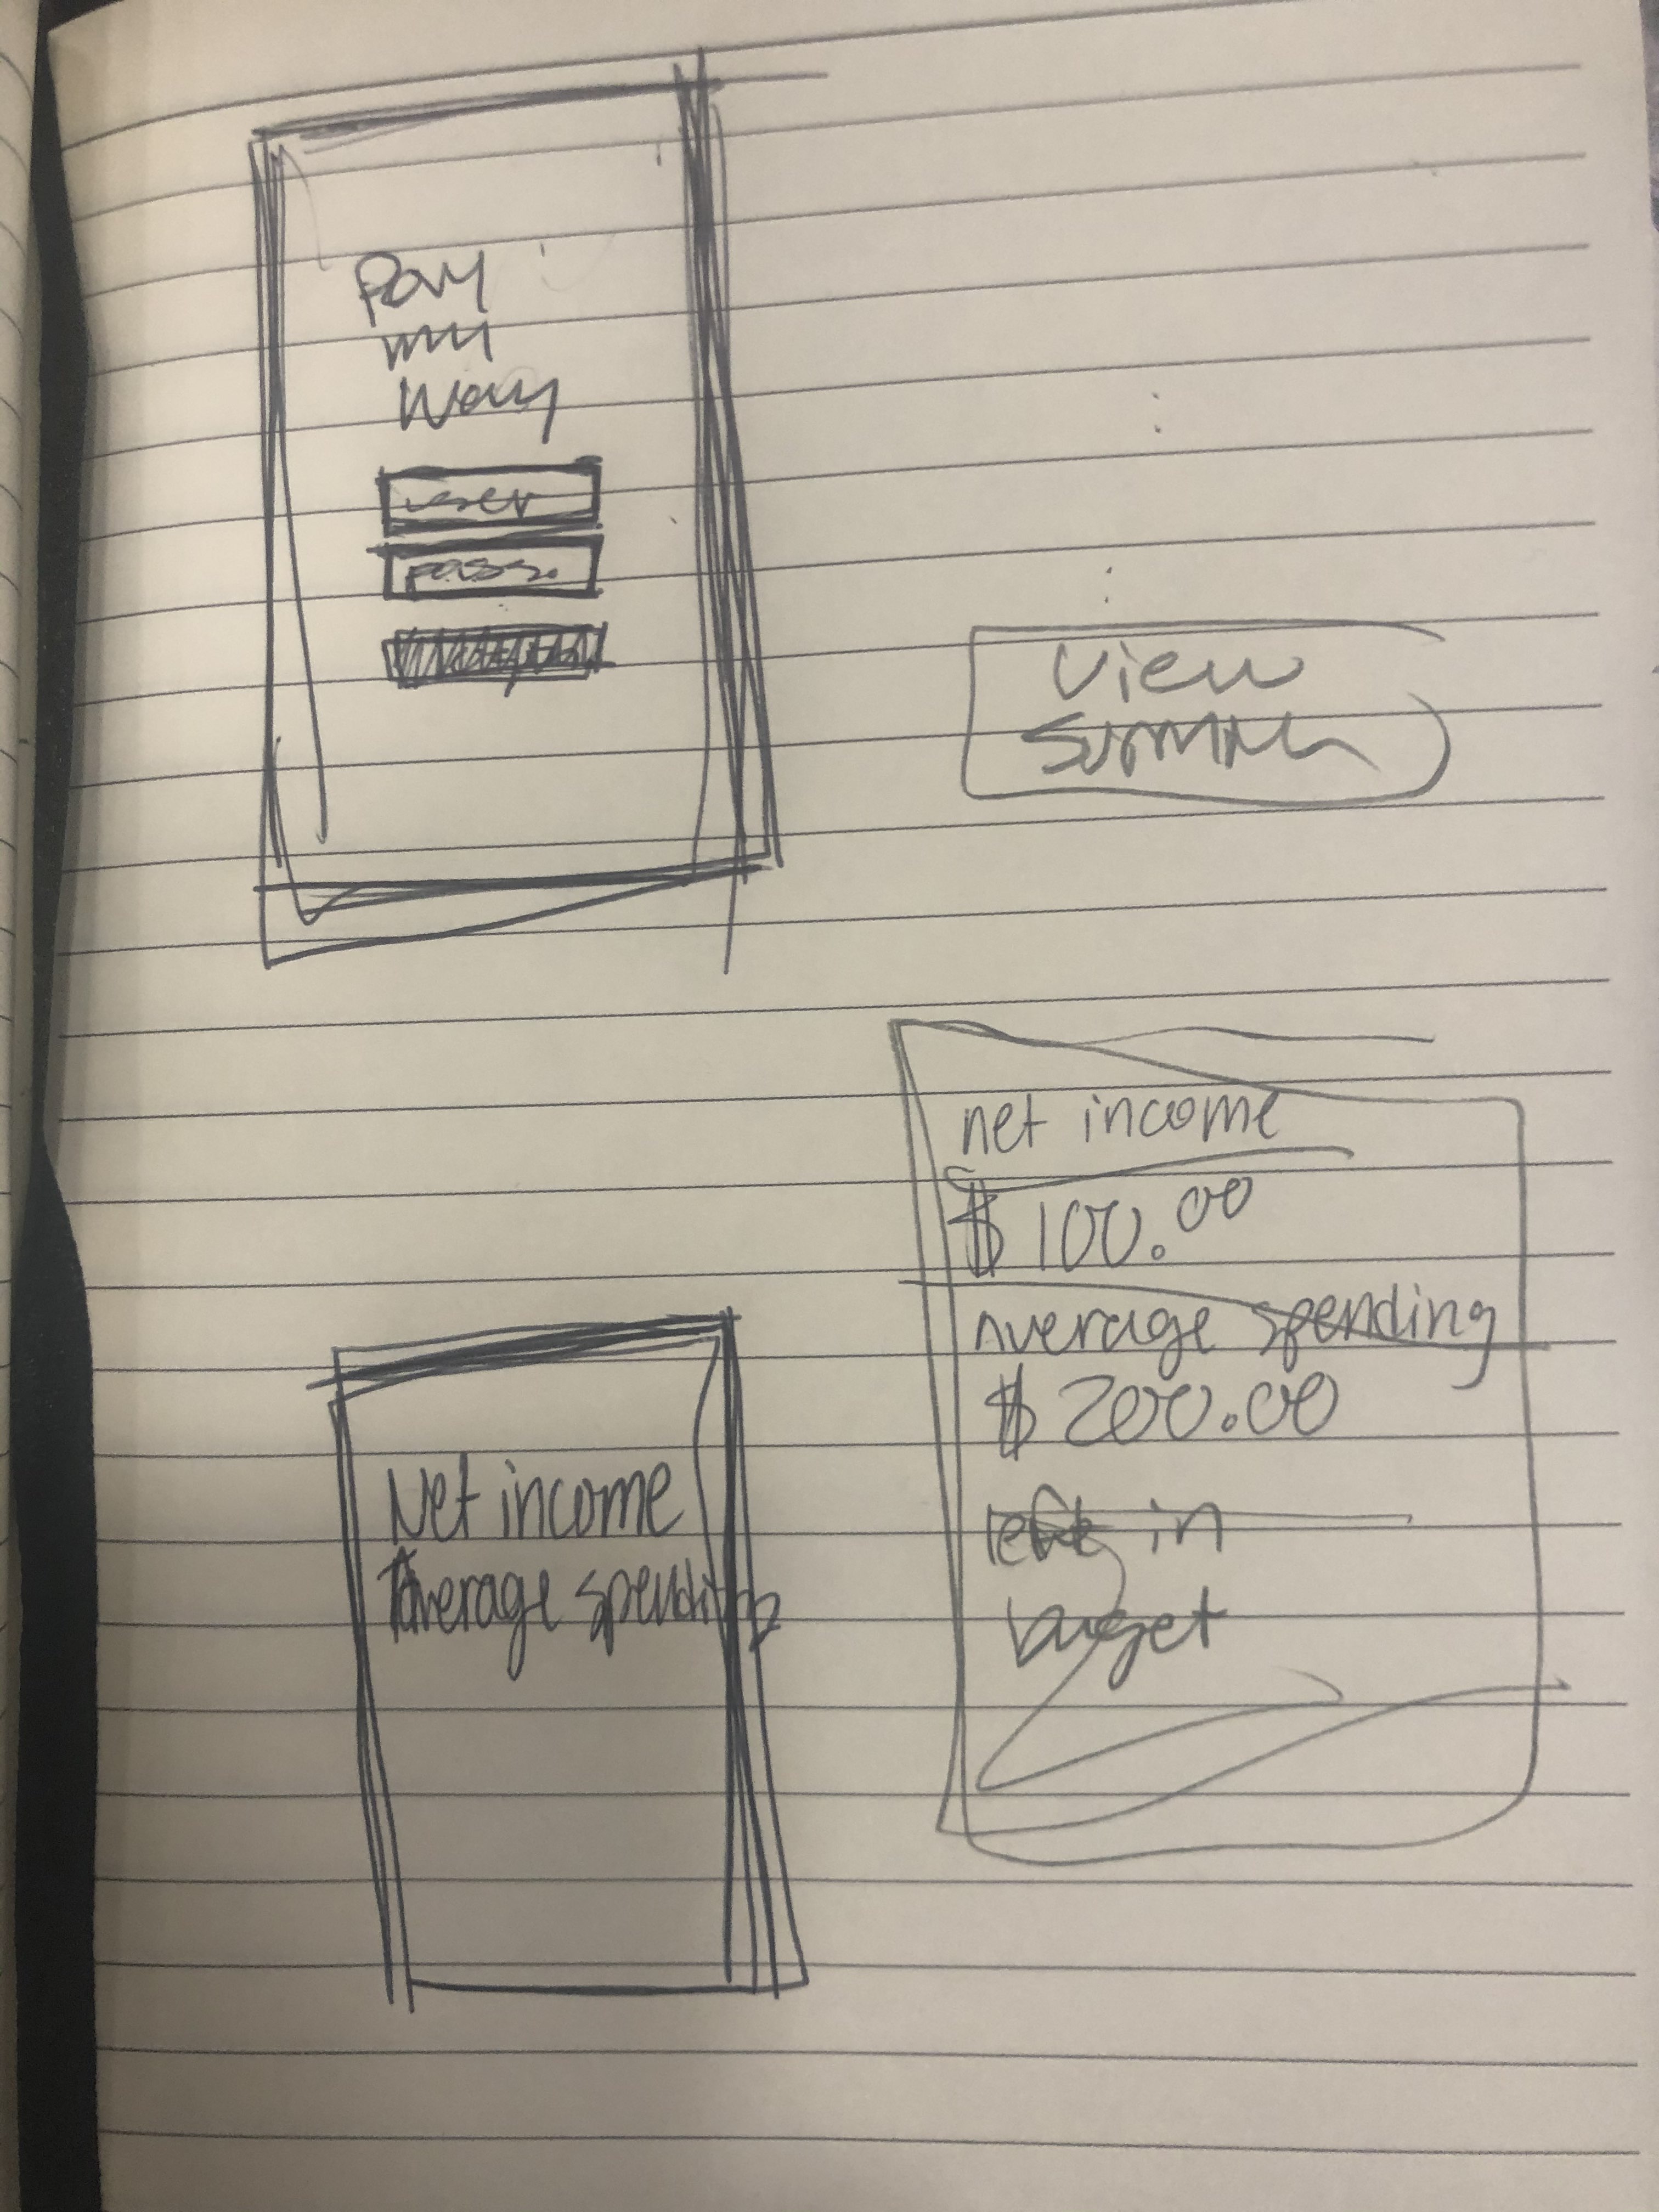 Pay
my
Way
user
pass.
View
net income
$ 100.00
Average spending
$ 200.00
left in
budget
Net income
Average spending